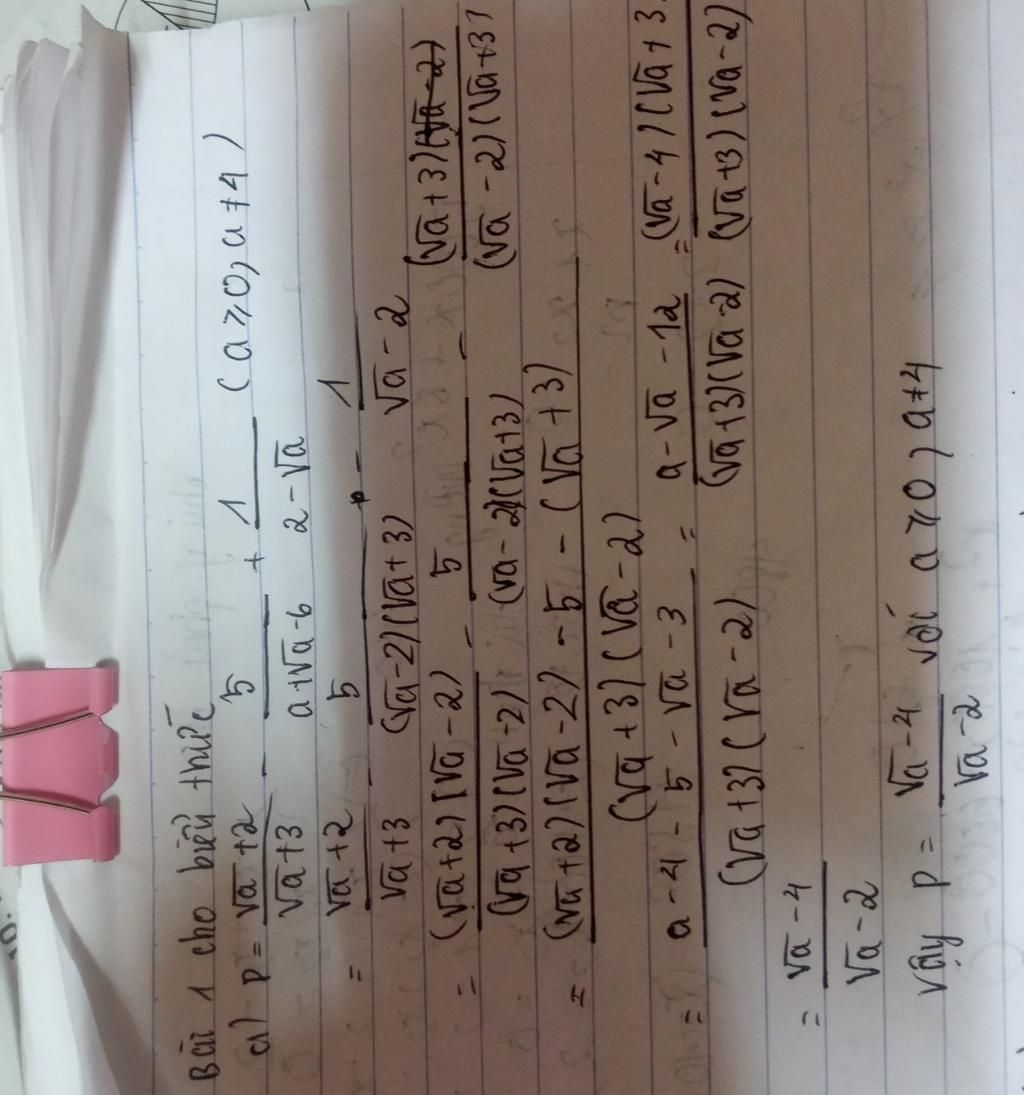 Bài 1 cho biểu thức
a) P = (√a+2)/(√a+3) - 5/(a+√a-6) + 1/(2-√a) (a ≥ 0, a ≠ 4)
= (√a+2)/(√a+3) - 5/((√a-2)(√a+3)) - 1/(√a-2)
= ((√a+2)(√a-2))/((√a+3)(√a-2)) - 5/((√a-2)(√a+3)) - ((√a+3))/((√a-2)(√a+3))
= ((√a+2)(√a-2) - 5 - (√a+3))/((√a+3)(√a-2))
= (a-4-5-√a-3)/((√a+3)(√a-2)) = (a-√a-12)/((√a+3)(√a-2)) = ((√a-4)(√a+3)/((√a+3)(√a-2)
= (√a-4)/(√a-2)
vậy P = (√a-4)/(√a-2) với a ≥ 0, a ≠ 4